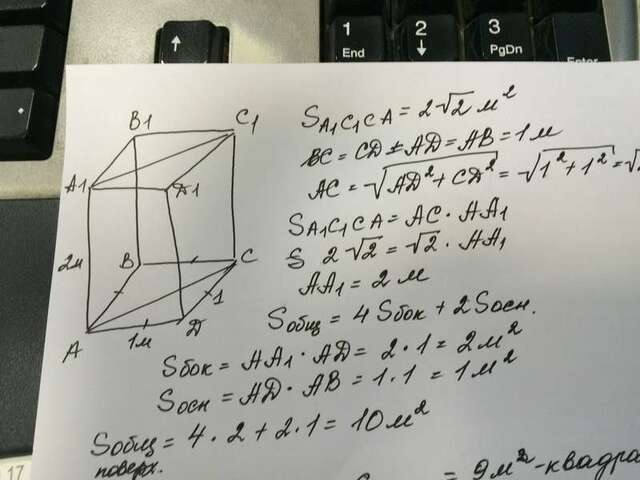 1
End
2
3
PgDn
Enter
B1
C1
A1
D1
2м
B
C
1
A
1м
D
S A1C1CA = 2√2 м²
BC = CD = AD = AB = 1м
AC = √AD² + CD² = √1² + 1² = √
S A1C1CA = AC · AA1
2√2 = √2 · AA1
AA1 = 2 м
Sобщ = 4 Sбок + 2 Sосн.
Sбок = AA1 · AD = 2 · 1 = 2 м²
Sосн = AD · AB = 1 · 1 = 1 м²
Sобщ = 4 · 2 + 2 · 1 = 10 м²
поверх.
= 9 м² - квадра
17